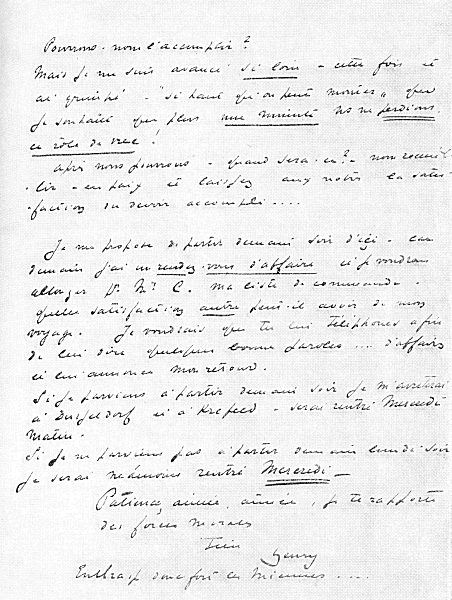 Pourrons-nous l'accomplir?
Mais je me suis avancé si loin - cette fois et
ai grimpé "si haut qu'on peut monter" que
je souhaite que plus une minute ns ne perdions
ce rôle de vue!
après nous pourrons - quand sera-ce? - nous recueil
lir - en paix et laisser aux nôtres la satis-
faction du devoir accompli ....
Je me propose de partir demain soir d'ici - car
demain j'ai un rendez-vous d'affaire et je voudrais
allonger pr Mr C. ma liste de commande.
quelle satisfaction autre peut-il avoir de mon
voyage. Je voudrais que tu lui téléphones afin
de lui dire quelques bonne paroles .... d'affaires
et lui annonce mon retour.
Si je parviens à partir demain soir je m'arrêterai
à Dusseldorf et à Krefeld - serai rentré Mercredi
matin.
Si je ne parviens pas à partir demain lundi soir
je serai néanmoins rentré Mercredi -
Patience, aimée, aimée, je te rapporte
des forces morales
Tien
Henry
Embrasse donc fort les Miennes ....